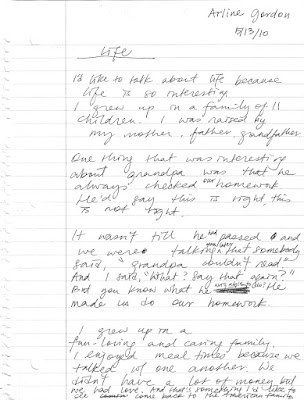 Arline Gordon
5/13/10
Life
I'd like to talk about life because
life is so interesting.
I grew up in a family of 11
children. I was raised by
my mother, father, grandfather
One thing that was interesting
about grandpa was that he
always checked our homework
He'd say this is right this
is not right.
It wasn't till he had passed and
we were talking that somebody
said, "grandpa couldn't read"
And I said, "What? Say that again?"
But you know what he He
made us do our homework.
I grew up in a
fun-loving and caring family.
I enjoyed meal times because we
talked w/ one another. We
didn't have a lot of money but
we had love. And that's something I'd like to
see come back to the American family